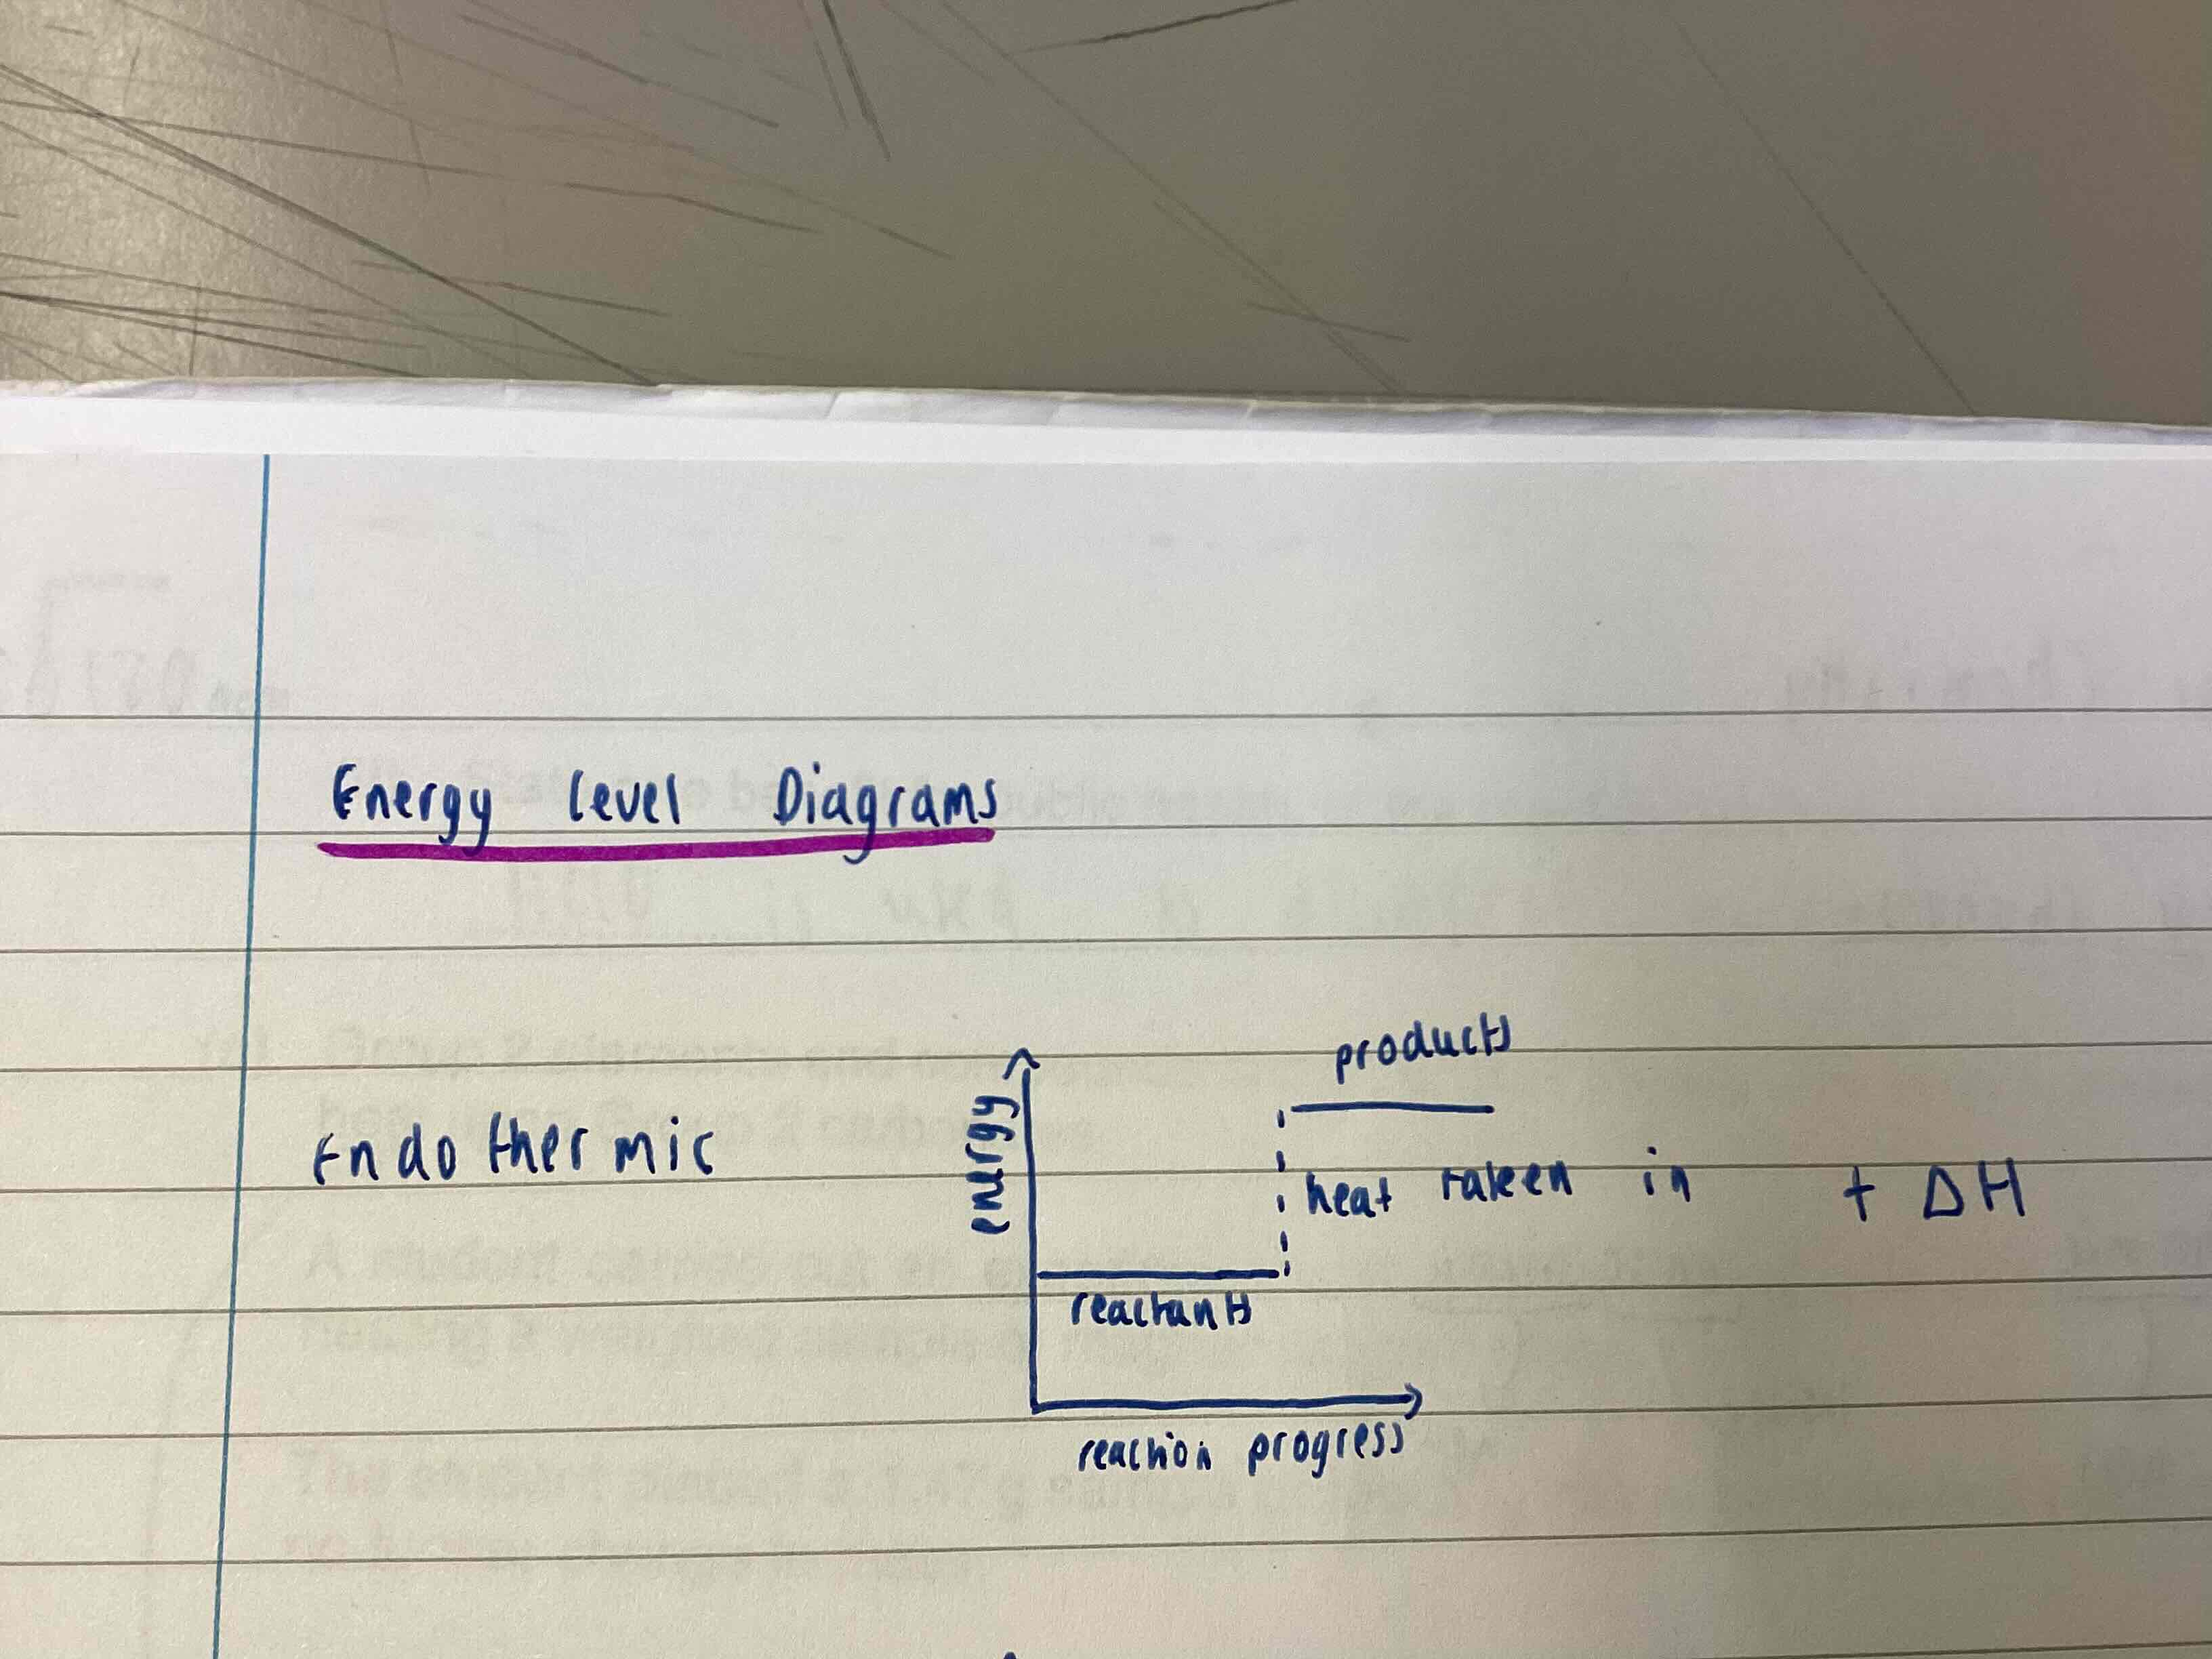 Energy Level Diagrams
products
energy
Endothermic
heat taken in + ΔH
reactants
reaction progress